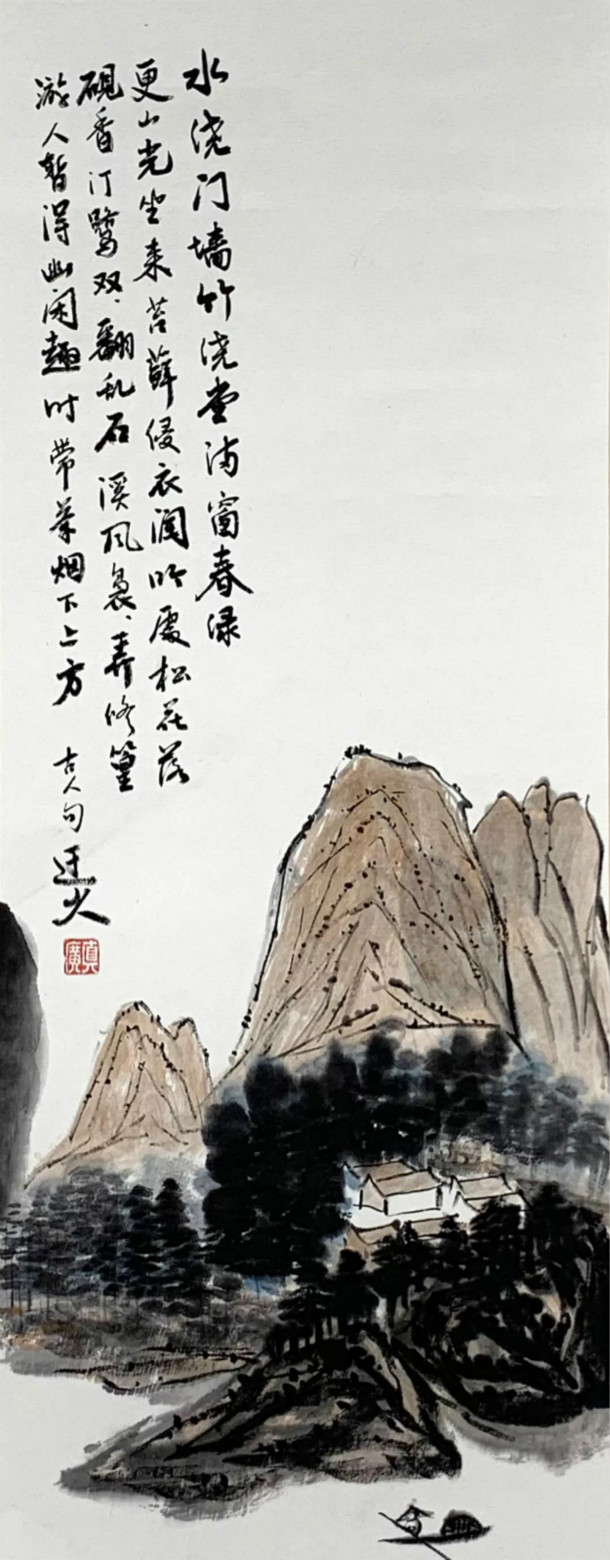 水绕门墙竹绕堂满窗春绿
更山光坐来苔藓侵衣润吟處松花落
硯香汀鹭双、翻乱石溪风袅、弄修篁
游人暂得幽闲趣时带茶烟下上方 古人句 迂火
真廣